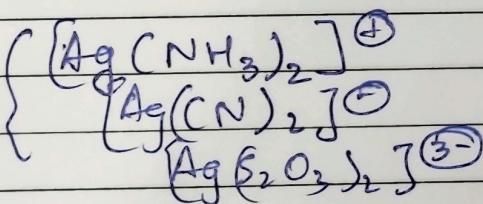 [Ag(NH₃)₂]⁺
[Ag(CN)₂]⁻
[Ag(S₂O₃)₂]³⁻